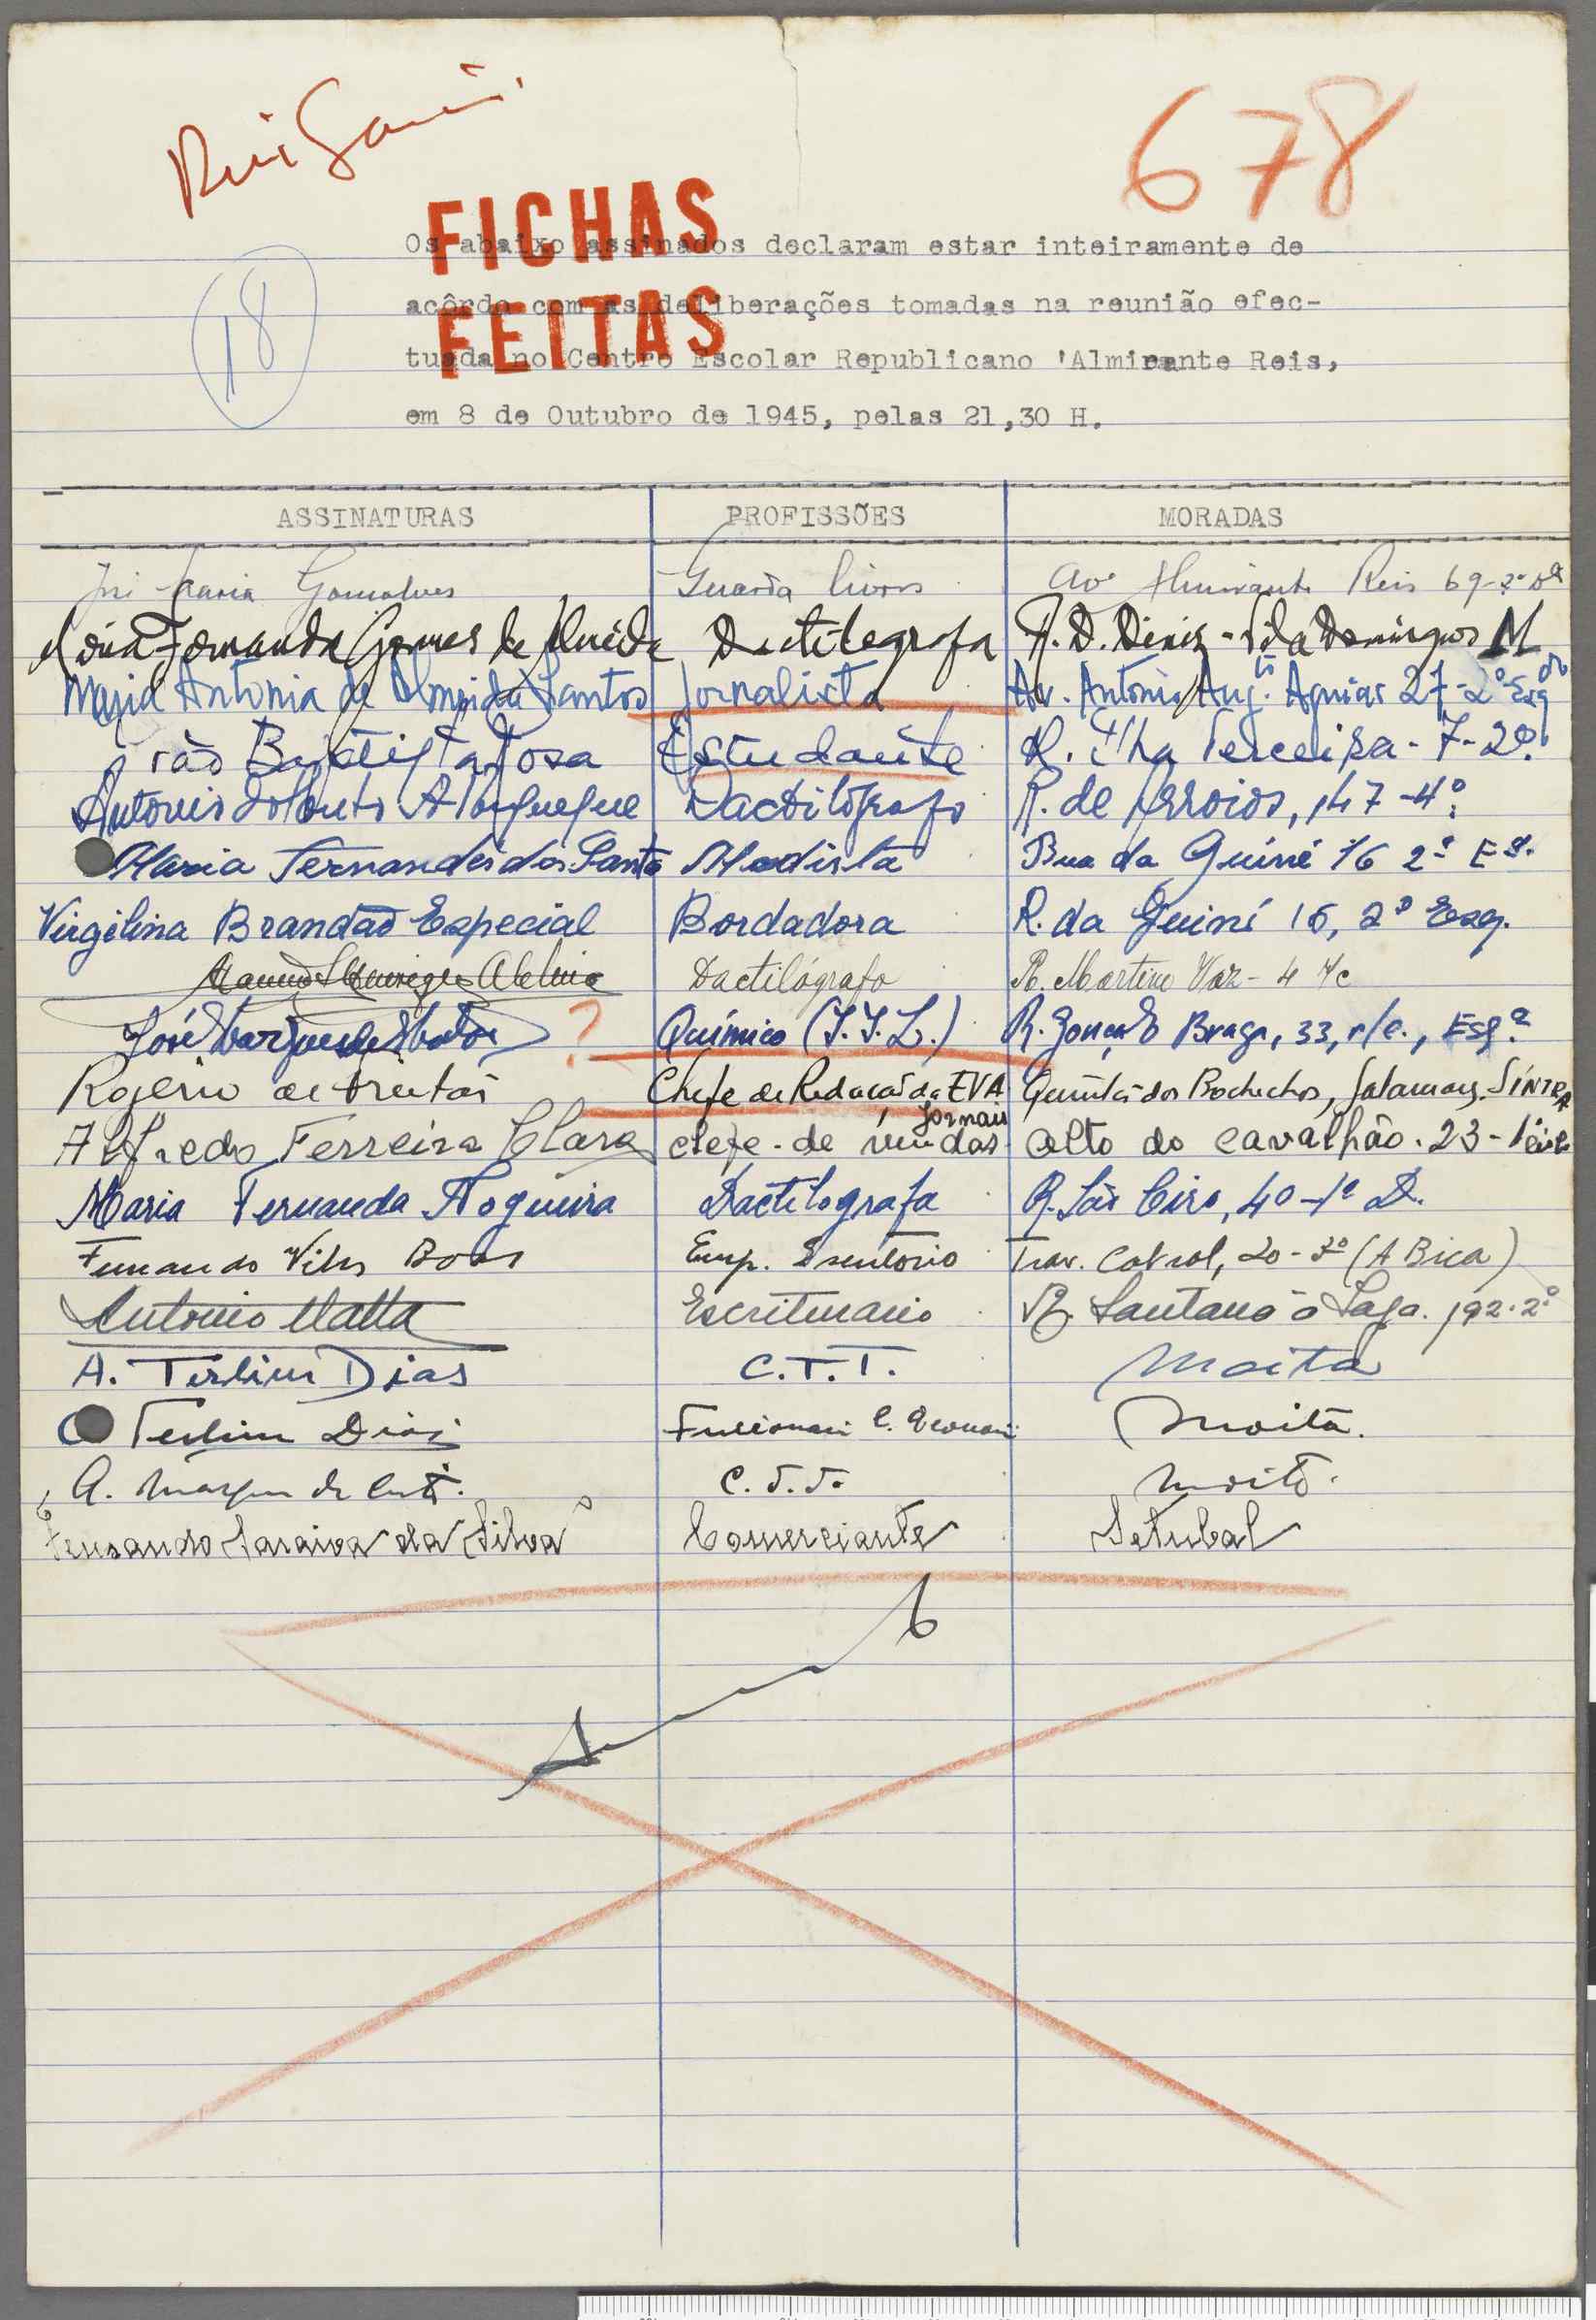 Rui
678
FICHAS
FEITAS
18
Os abaixo assinados declaram estar inteiramente de
acôrdo com as deliberações tomadas na reunião efec-
tuada no Centro Escolar Republicano 'Almirante Reis,
em 8 de Outubro de 1945, pelas 21,30 H.
ASSINATURAS PROFISSÕES MORADAS
José Maria Gonçalves Guarda livros Av. Almirante Reis 69-2º Dº
Maria Fernanda Gomes de Almeida Dactilografa R. D. Diniz - Vila Domingues M
Maria Antonia de Almeida Santos Jornalista Av. António Aug. Aguiar 27-2º Esqdo
João Baptista Rosa Estudante R. Ilha Terceira - 7-2º.
Antonio do Couto Albuquerque Dactilógrafo R. de Arroios, 147-4º
Maria Fernandes dos Santos Modista Rua da Guiné 16 2º Eº.
Virgilina Brandão Especial Bordadora R. da Guiné 16, 2º Esq.
Manuel Henriques Dactilógrafo R. Martim Vaz - 4 r/c
José Marques ? Químico (I.I.L.) R. Gonçalo Braga, 33, r/c., Esqº
Rogério de Freitas Chefe de Redacção da EVA Quinta dos Bochechos, Galamares. SÍNTRA
Alfredo Ferreira Clara chefe de vendas Jornais Alto do Carvalhão. 23-
Maria Fernanda Nogueira Dactilografa R. São Ciro, 40-1º D.
Fernando Vilas Boas Emp. Escritório Trav. Cabral, 20-3º (A Bica)
Antonio Matta Escriturario R. Santana á Lapa. 192-2º
A. Terlim Dias C.T.T. Moita
Terlim Dias Moita.
A. Marques da Costa. C.T.T. Moita.
Fernando Saraiva da Silva Comerciante Setubal